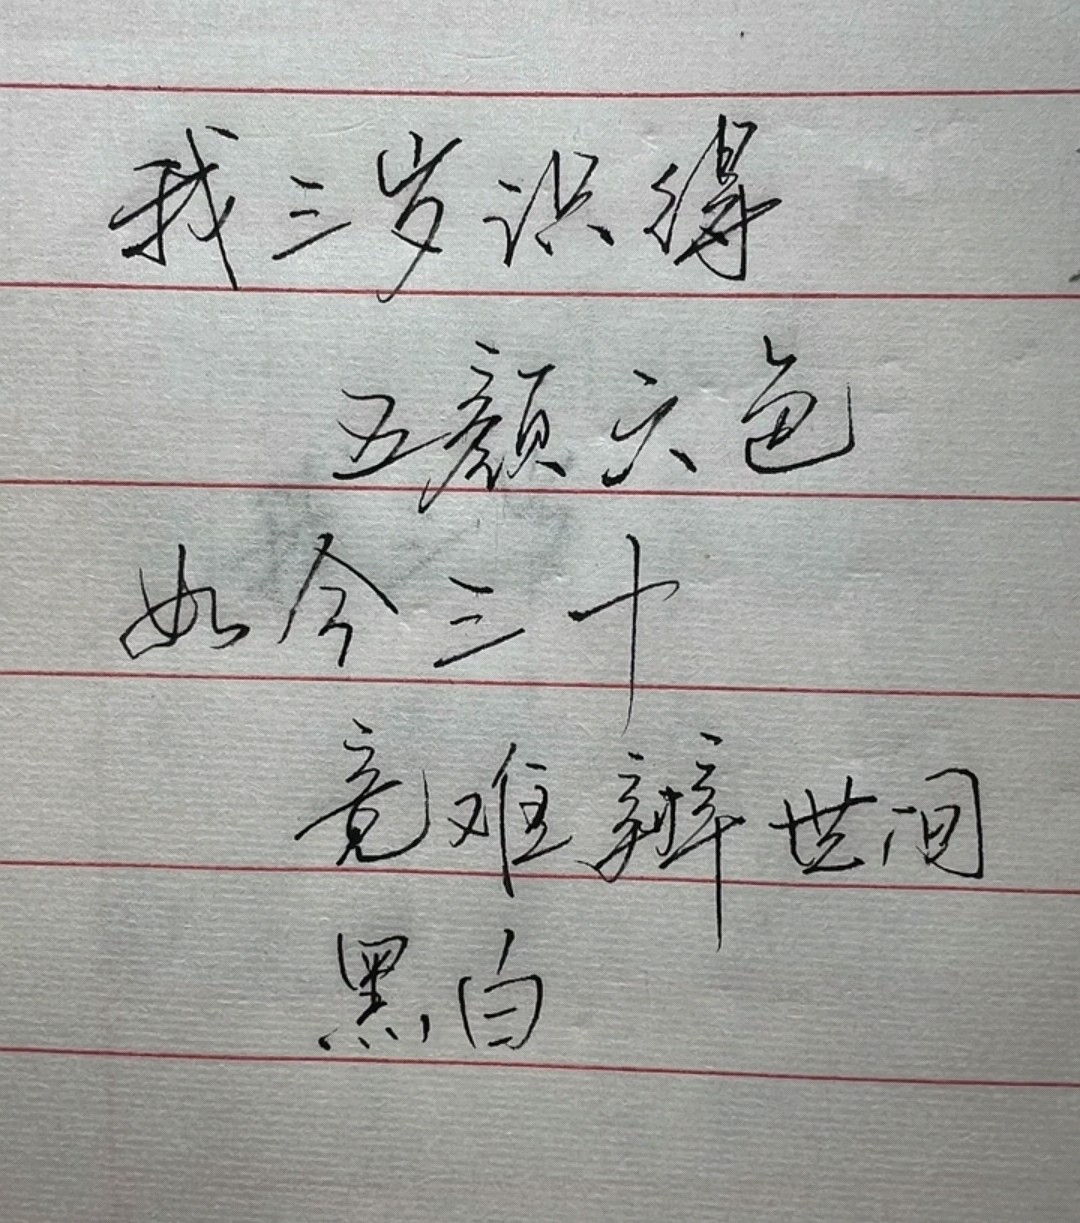 我三岁识得
五颜六色
如今三十
竟难辨世间
黑白